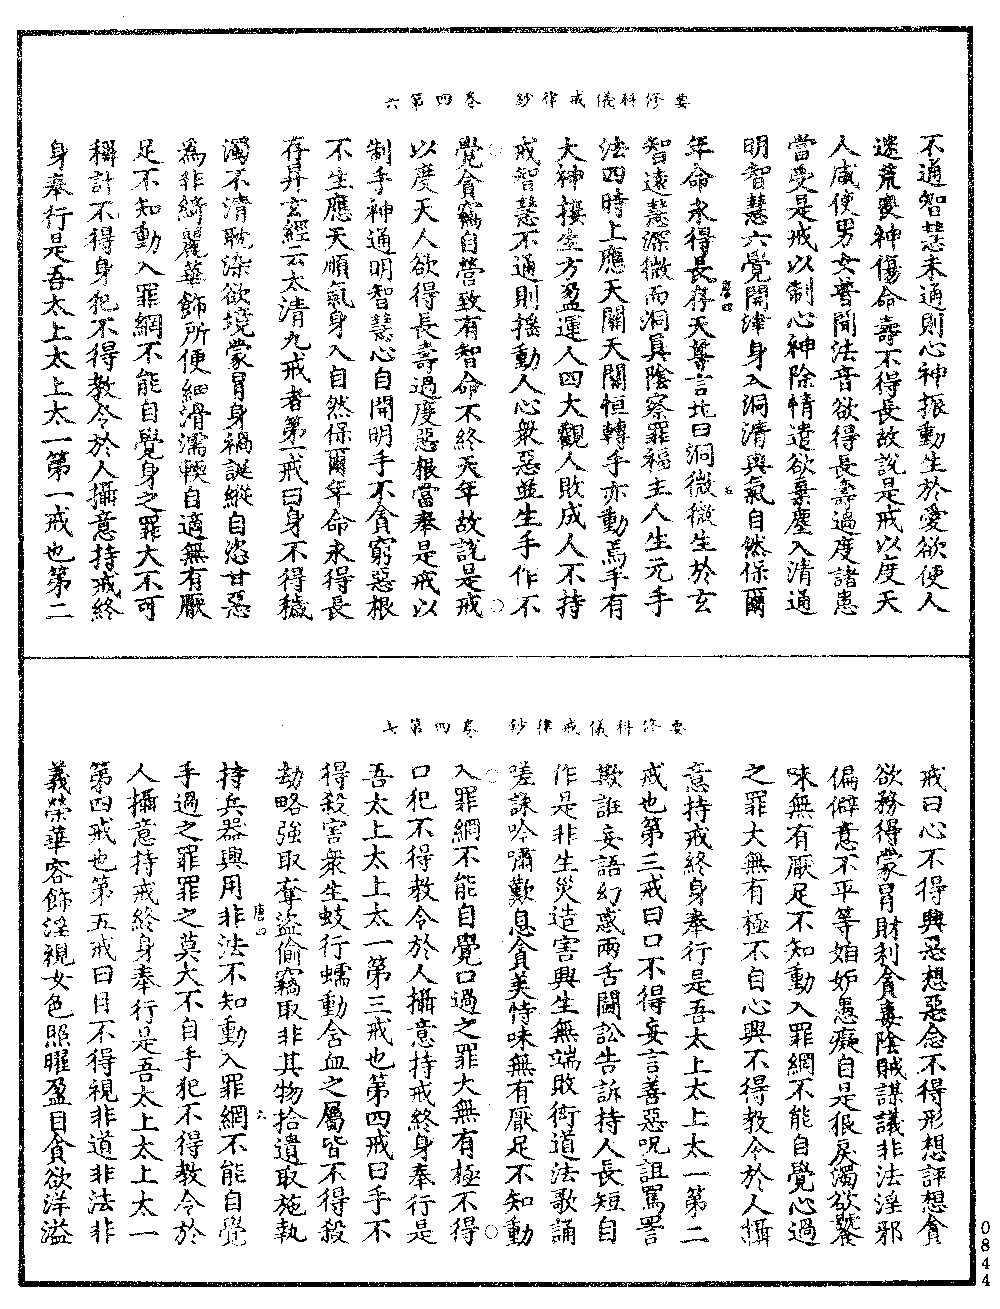 要修科儀戒律鈔　卷四第六
不通智慧未通則心神振動生於愛欲使人
迷荒喪神傷命壽不得長故說是戒以度天
人咸使男女普聞法音欲得長壽過度諸患
當受是戒以制心神除情遣欲棄塵入清通
明智慧六覺開津身入洞清與氣自然保爾
年命永得長存天尊言北曰洞微微生於玄
智遠慧深微而洞真陰察罪福主人生元手
法四時上應天關天關恒轉手亦動焉手有
大神接生方盈運人四大觀人敗成人不持
戒智慧不通則搖動人心衆惡並生手作不
覺貪竊自營致有智命不終天年故說是戒
以度天人欲得長壽過度惡根當奉是戒以
制手神通明智慧心自開明手不貪窮惡根
不生應天順氣身入自然保爾年命永得長
存昇玄經云太清九戒者第一戒曰身不得穢
濁不清耽染欲境蒙冒身禍誕縱自恣甘惡
為非綺麗華飾所便細滑濡輭自適無有厭
足不知動入罪網不能自覺身之罪大不可
稱計不得身犯不得教令於人攝意持戒終
身奉行是吾太上太上太一第一戒也第二
要修科儀戒律鈔　卷四第七
戒曰心不得興惡想惡念不得形想評想貪
欲務得蒙冒財利貪毒陰賊謀議非法淫邪
偏僻意不平等姤妒愚癡自是佷戾濁欲饕
味無有厭足不知動入罪網不能自覺心過
之罪大無有極不自心興不得教令於人攝
意持戒終身奉行是吾太上太上太一第二
戒也第三戒曰口不得妄言善惡呪詛罵詈
欺誑妄語幻惑兩舌鬭訟告訴持人長短自
作是非生災造害興生無端敗衒道法歌誦
嗟詠吟嘯歎息貪美恃味無有厭足不知動
入罪網不能自覺口過之罪大無有極不得
口犯不得教令於人攝意持戒終身奉行是
吾太上太上太一第三戒也第四戒曰手不
得殺害衆生蚑行蠕動含血之屬皆不得殺
劫略強取奪盜偷竊取非其物拾遺取施執
持兵器輿用非法不知動入罪網不能自覺
手過之罪罪之莫大不自手犯不得教令於
人攝意持戒終身奉行是吾太上太上太一
第四戒也第五戒曰目不得視非道非法非
義榮華容飾淫視女色照曜盈目貪欲洋溢
0844